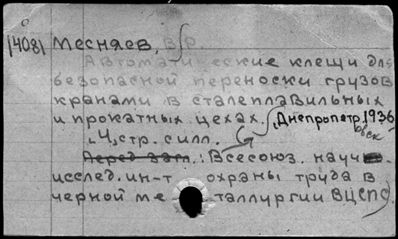 14081 Месняев, В.Р.
Автомати еские клещи для
безопасной переноски грузов
кранами в сталеплавильных
и прокатных цехах. Днепропетр, 1936
,4, стр. силл.
Перед загл.: Всесоюз. науч
исслед. ин-т охраны труда в
черной ме таллургии ВЦСПС)